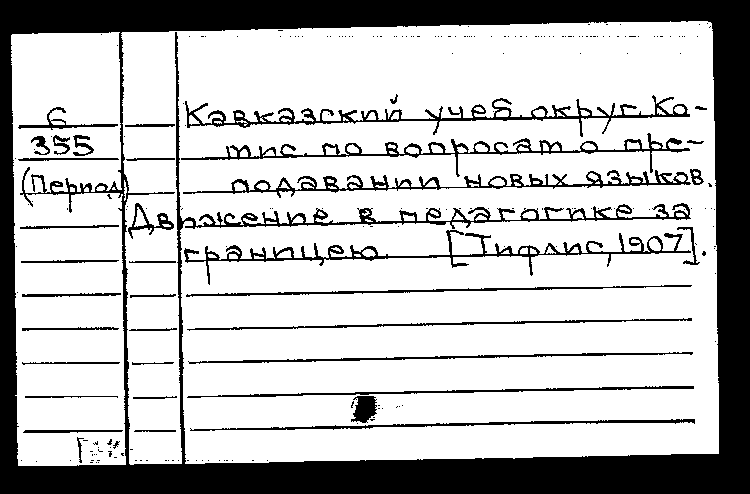 6
355
(Период)
Кавказский учеб. округ. Ко-
мис. по вопросам о пре-
подавании новых языков.
Движение в педагогике за
границею. [Тифлис, 1907].